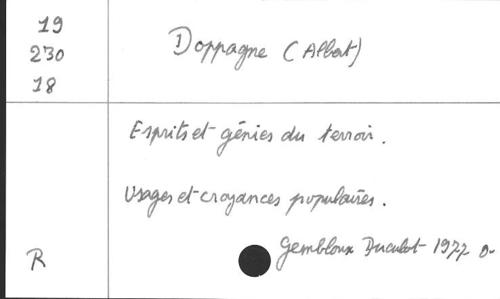 19
230
18
Doppagne (Albert)
Esprits et génies du terroir.
Usages et croyances populaires.
Gembloux Duculot 1977
R